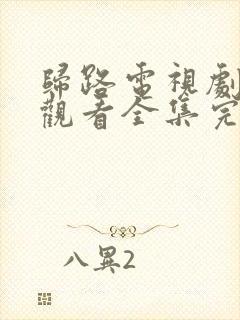 歸路電視劇
觀看全集完
八異2